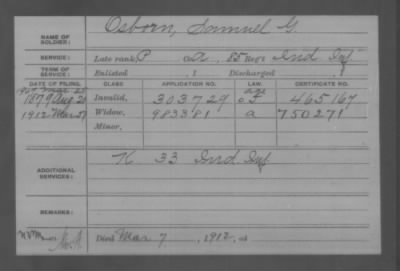 NAME OF SOLDIER: Osborn, Samuel G.
SERVICE: Late rank, P Co. A, 85 Reg't Ind. Inf.
TERM OF SERVICE: Enlisted , 1 Discharged , 1
DATE OF FILING. CLASS. APPLICATION NO. LAW. CERTIFICATE NO.
1907 Mar 25 age
1879 Aug 21 Invalid, 303729 465167
1912 Mar 27 Widow, 983381 a 750271
Minor,
ADDITIONAL SERVICES: K 33 Ind. Inf.
REMARKS:
Died Mar 7, 1912, at